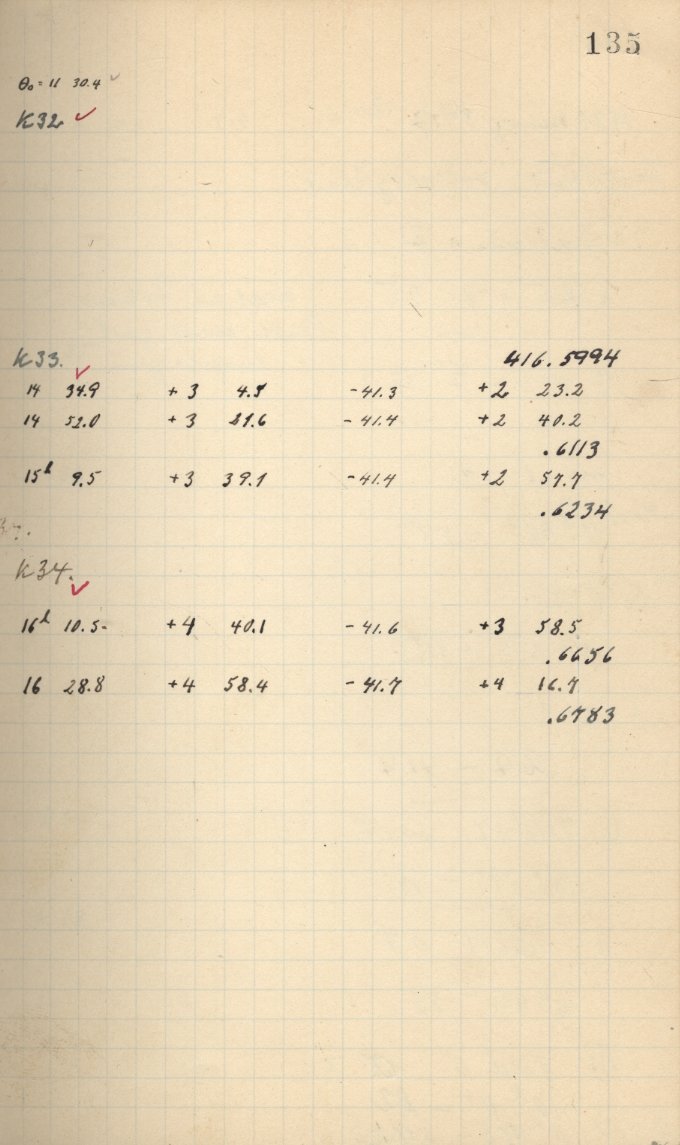 135
θ₀ = 11 30.4 ✓
K32 ✓
K33. ✓ 416.5994
14 34.9 + 3 4.5 - 41.3 + 2 23.2
14 52.0 + 3 21.6 - 41.4 + 2 40.2
.6113
15ʰ 9.5 + 3 39.1 - 41.4 + 2 57.7
.6234
K34. ✓
16ʰ 10.5 + 4 40.1 - 41.6 + 3 58.5
.6656
16 28.8 + 4 58.4 - 41.7 + 4 16.7
.6783